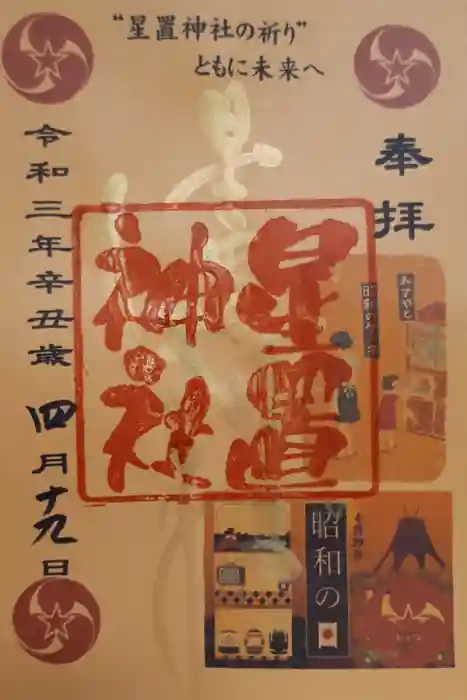 “星置神社の祈り”
ともに未来へ
奉拝
星置
神社
令和三年辛丑歳 四月十九日
4月29日
昭和の